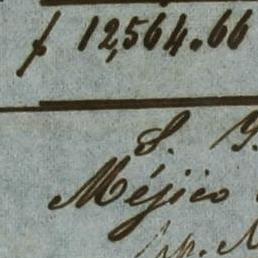 f 12,564.66
S.
Méjico